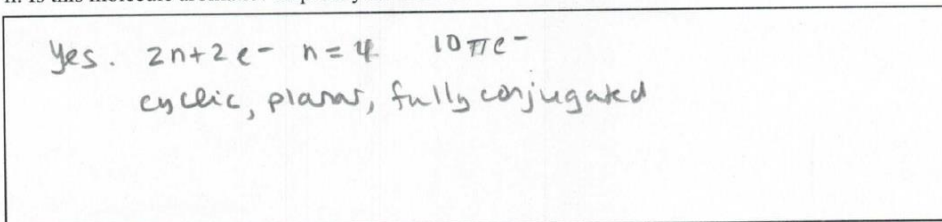 Yes. 2n+2e- n=4 10πe-
cyclic, planar, fully conjugated